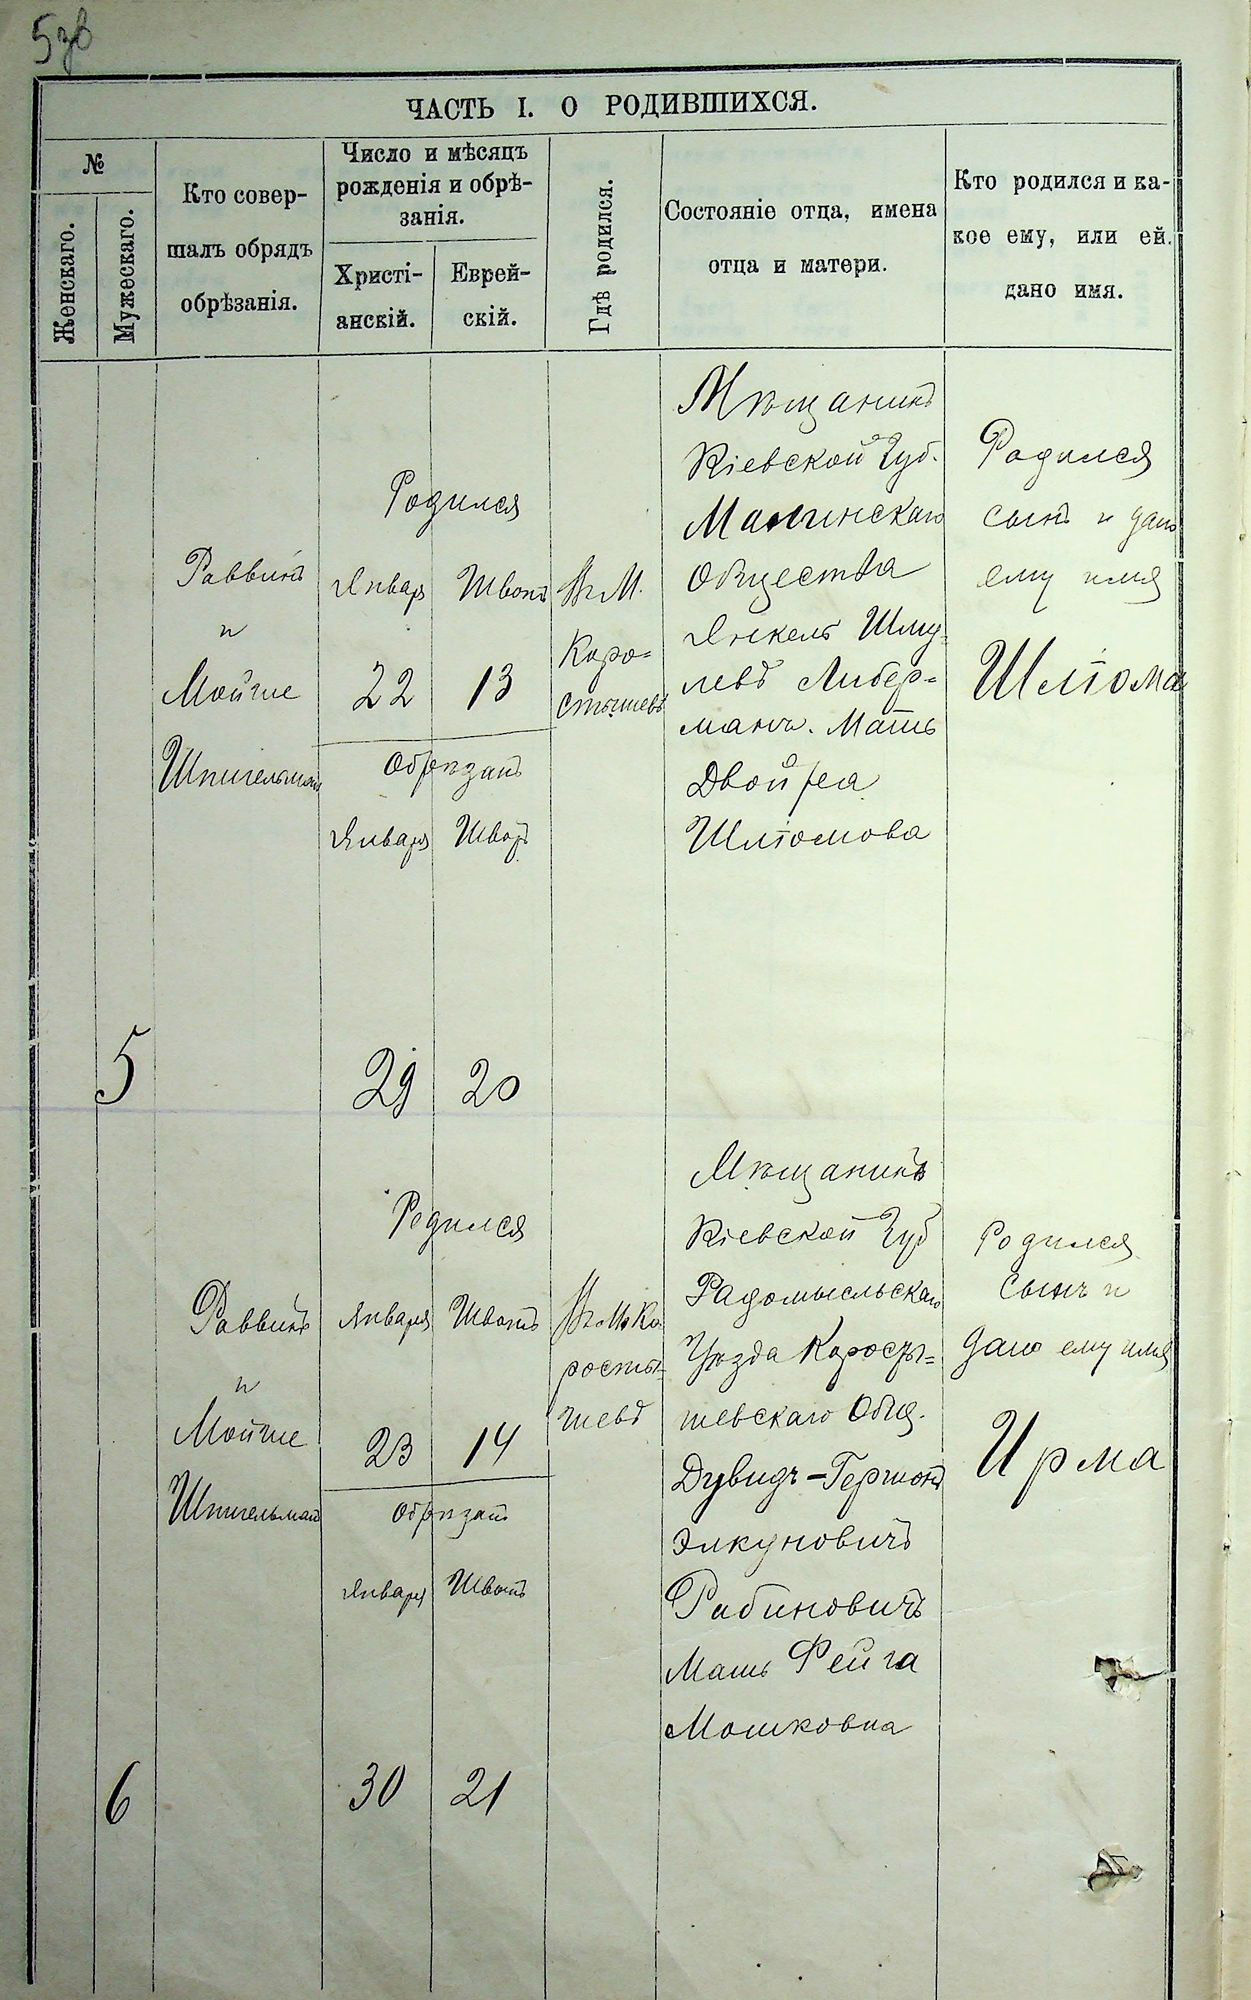 ЧАСТЬ I. О РОДИВШИХСЯ.
№
Женскаго.
Мужескаго.
Кто совер-
шалъ обрядъ
обрѣзанія.
Число и мѣсяцъ
рожденія и обрѣ-
занія.
Христі-
анскій.
Еврей-
скій.
Гдѣ родился.
Состояніе отца, имена
отца и матери.
Кто родился и ка-
кое ему, или ей
дано имя.
5
Раввинъ
и
Мойше
Шпигельманъ
Родился
Январ Швотъ
22 13
Обрѣзанъ
Января Швотъ
29 20
Въ М.
Коро-
стышевѣ
Мѣщанинъ
Кіевской Губ.
Малинскаго
Общества
Янкель Шму-
левъ Либер-
манъ. Мать
Двойра
Шліомова
Родился
сынъ и дано
ему имя
Шліома
6
Раввинъ
и
Мойше
Шпигельманъ
Родился
Января Швотъ
23 14
Обрѣзанъ
Января Швотъ
30 21
Въ М. Ко
росты-
шевѣ
Мѣщанинъ
Кіевской Губ
Радомысльскаго
Уѣзда Коросты-
шевскаго Общ.
Дувидъ-Гершонъ
Элкуновичъ
Рабиновичъ
Мать Фейга
Мошковна
Родился
сынъ и
дано ему имя
Ирма